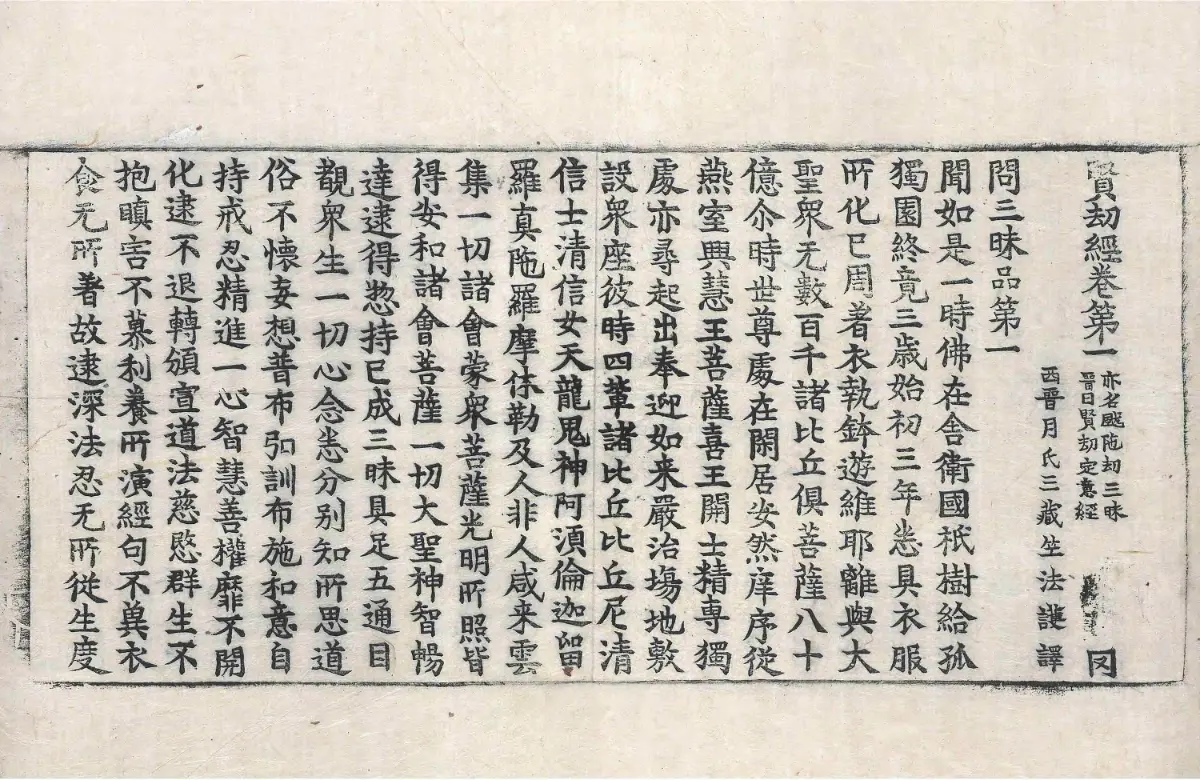 賢劫經卷第一 亦名颰陁劫三昧
晉曰賢劫定意經 罔
西晉月氏三藏竺法護譯
問三昧品第一
聞如是一時佛在舍衛國祇樹給孤
獨園終竟三歳始初三年悉具衣服
所化已周著衣執鉢遊維耶離與大
聖衆无數百千諸比丘俱菩薩八十
億尒時世尊處在閑居安然庠序從
燕室興慧王菩薩喜王開士精專獨
處亦尋起出奉迎如来嚴治塲地敷
設衆座彼時四輩諸比丘比丘尼清
信士清信女天龍鬼神阿湏倫迦留
羅真陁羅摩休勒及人非人咸来雲
集一切諸會蒙衆菩薩光明所照皆
得安和諸會菩薩一切大聖神智暢
達逮得惣持已成三昧具足五通目
覩衆生一切心念悉分别知所思道
俗不懷妄想普布弘訓布施和意自
持戒忍精進一心智慧善權靡不開
化逮不退轉頒宣道法慈愍群生不
抱瞋害不慕利養所演經句不兾衣
食无所著故逮深法忍无所從生度